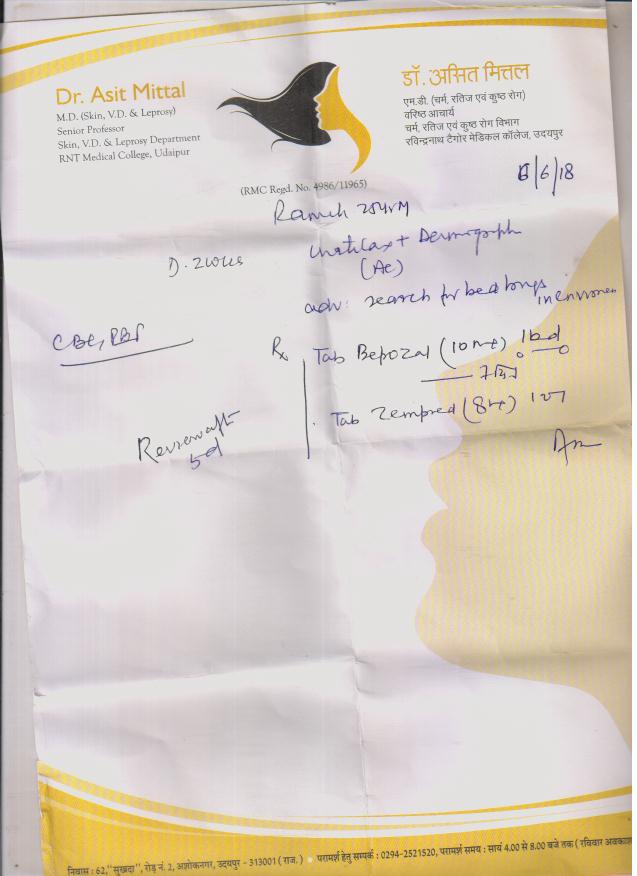 Dr. Asit Mittal
M.D. (Skin, V.D. & Leprosy)
Senior Professor
Skin, V.D. & Leprosy Department
RNT Medical College, Udaipur
डॉ. असित मित्तल
एम.डी. (चर्म, रतिज एवं कुष्ठ रोग)
वरिष्ठ आचार्य
चर्म, रतिज एवं कुष्ठ रोग विभाग
रविन्द्रनाथ टैगोर मेडिकल कॉलेज, उदयपुर
(RMC Regd. No. 4986/11965)
6/6/18
25yrM
D. 2weeks
+ Dermograph
(Ac)
adv: search for bed bugs
in
CBC, PBF
Rx Tab (10mg) 1bd
7 दिन
Tab Zempred (8mg) 1
Review aft
5d
निवास : 62,"सुखदा", रोड़ नं. 2, अशोकनगर, उदयपुर - 313001 ( राज. ) • परामर्श हेतु सम्पर्क : 0294-2521520, परामर्श समय : सायं 4.00 से 8.00 बजे तक ( रविवार